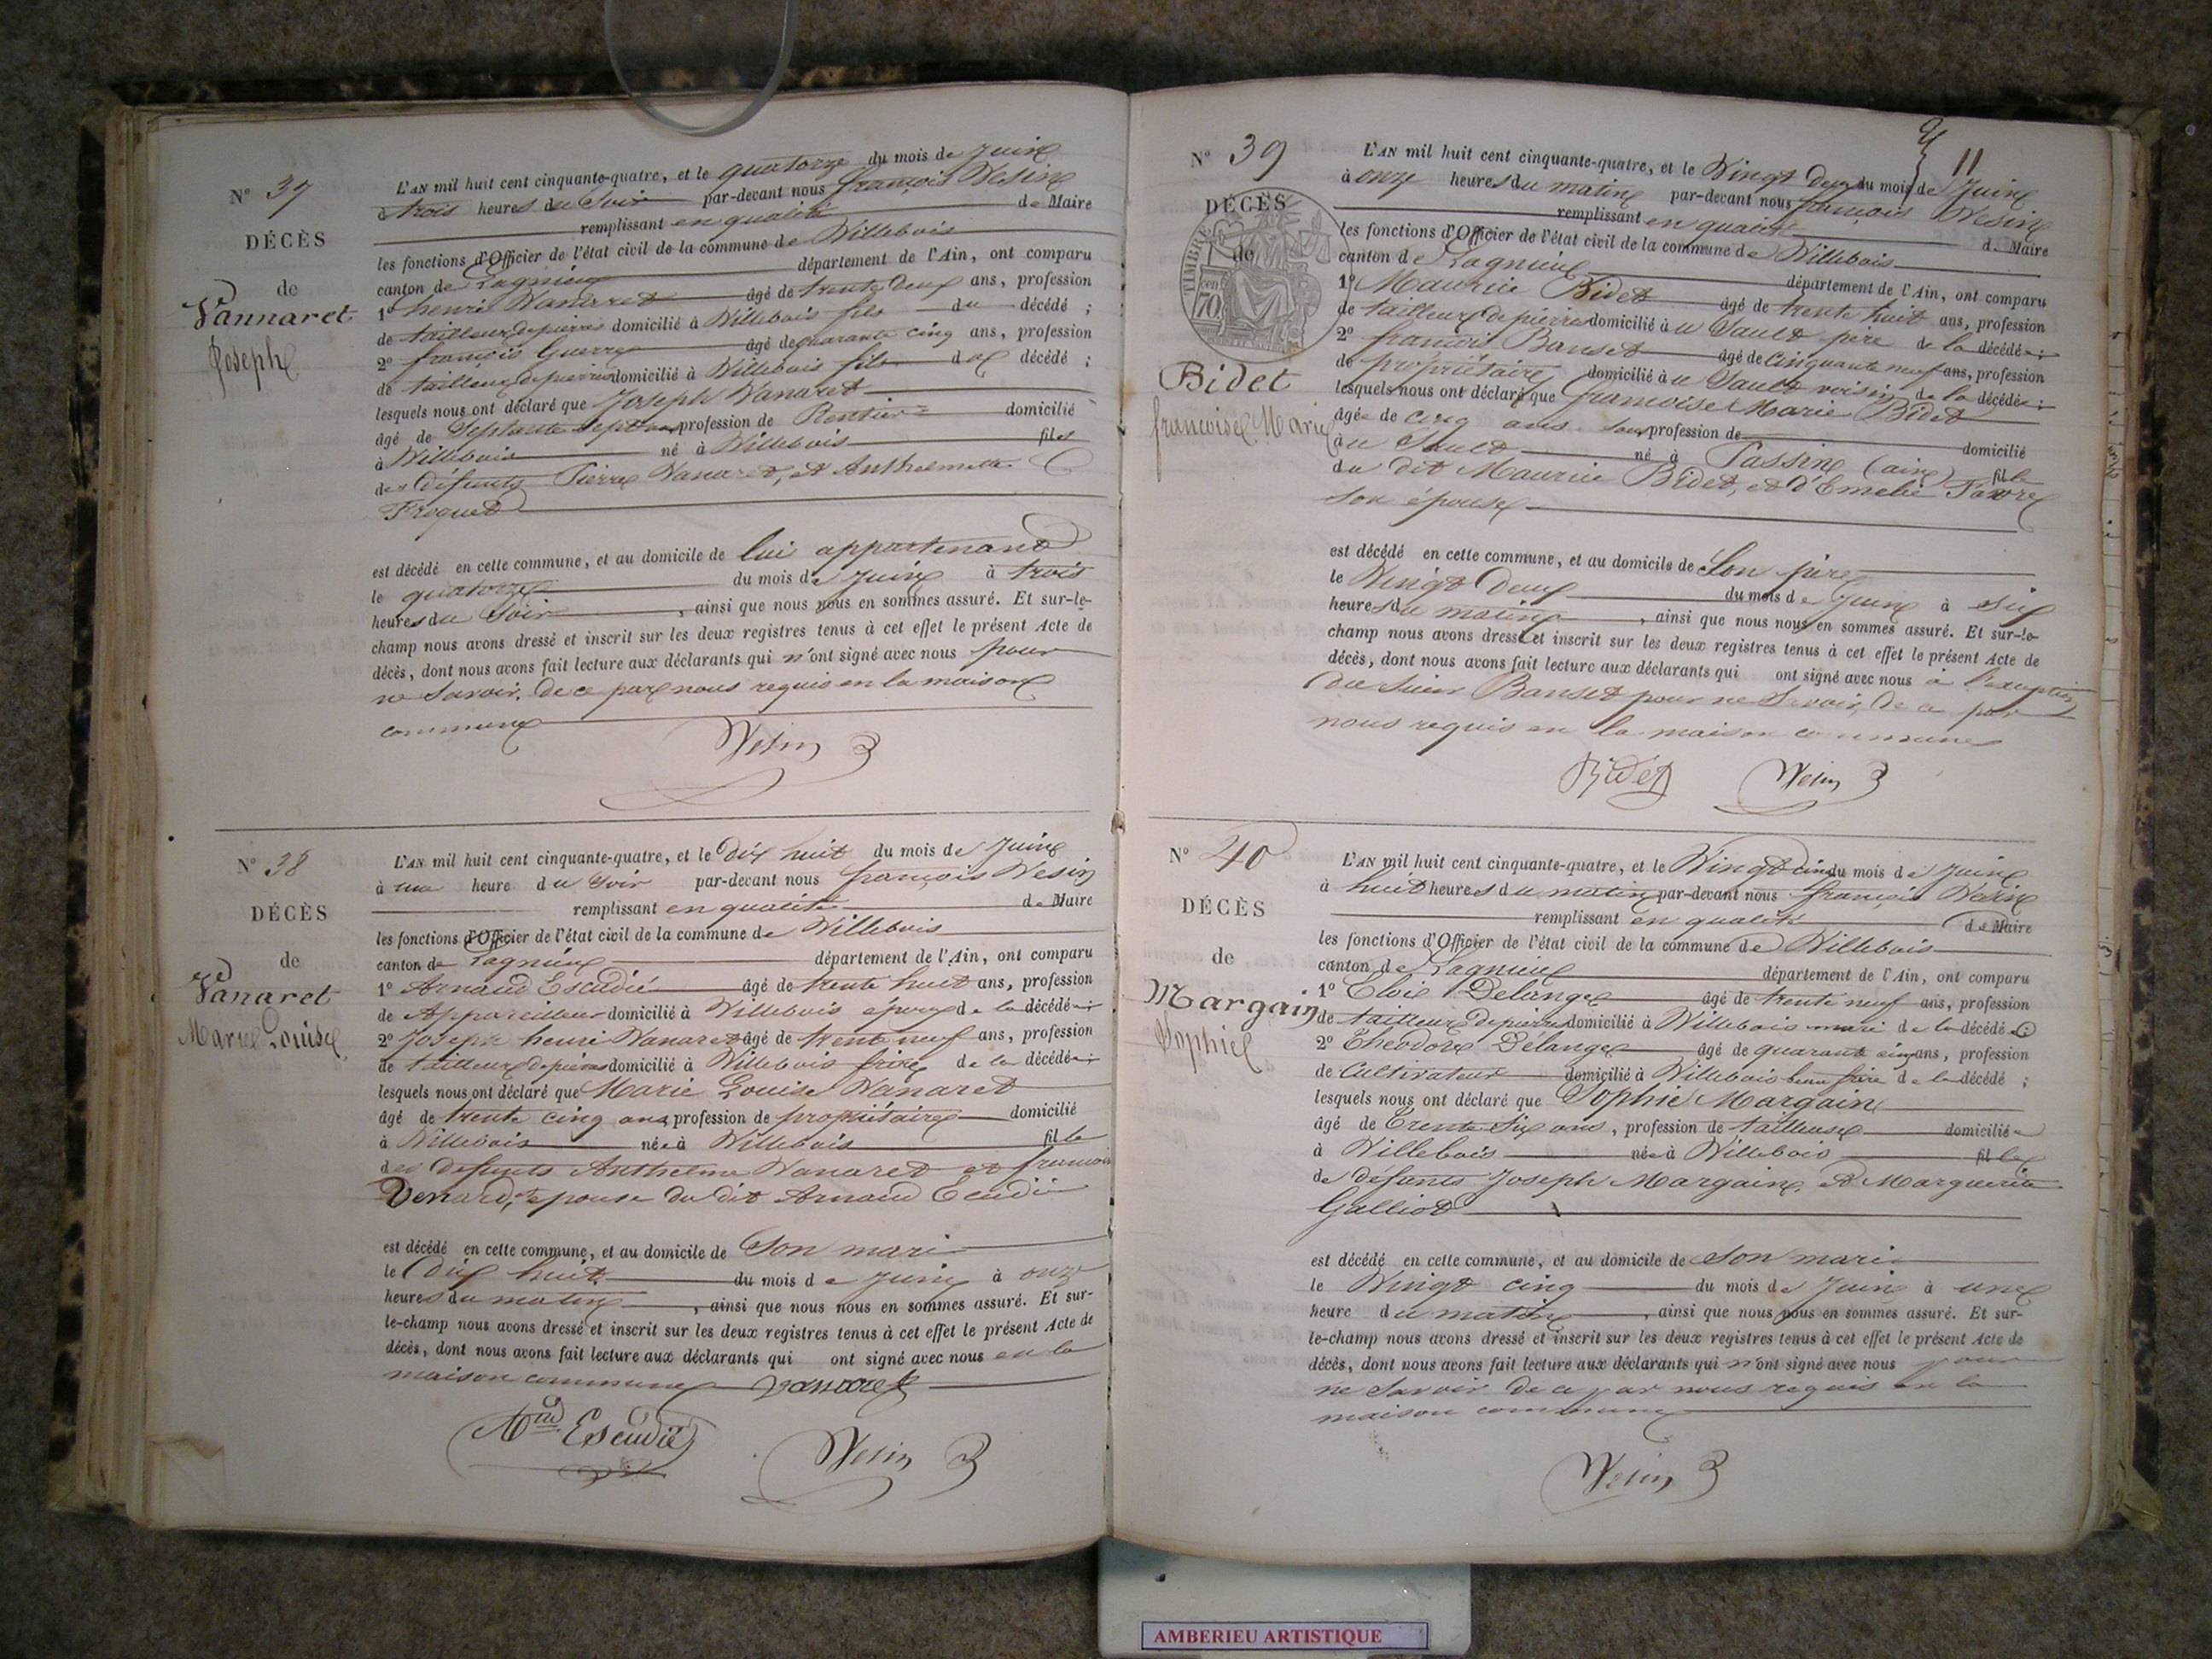 N° 37
DÉCÈS
de
Vannaret
Joseph
L'AN mil huit cent cinquante-quatre, et le quatorze du mois de Juin
trois heures du Soir par-devant nous françois Vesin
remplissant en qualité de Maire
les fonctions d'Officier de l'état civil de la commune de Villebois
canton de Lagnieu département de l'Ain, ont comparu
1° henri Vanarret âgé de trente deux ans, profession
de tailleur de pierres domicilié à Villebois fils du décédé ;
2° françois Guerre âgé de quarante cinq ans, profession
de tailleur de pierres domicilié à Villebois fils d décédé ;
lesquels nous ont déclaré que Joseph Vanaret
âgé de Septante Sept ans profession de Rentier domicilié
à Villebois né à Villebois fils
des défunts Pierre Vanaret, et Anthelmette
Froquet
est décédé en cette commune, et au domicile de lui appartenant
le quatorze du mois de Juin à trois
heures du Soir , ainsi que nous nous en sommes assuré. Et sur-le-
champ nous avons dressé et inscrit sur les deux registres tenus à cet effet le présent Acte de
décès, dont nous avons fait lecture aux déclarants qui n'ont signé avec nous pour
ne Savoir, de ce par nous requis en la maison
commune
Vesin
N° 38
DÉCÈS
de
Vanaret
Marie Louise
L'AN mil huit cent cinquante-quatre, et le Dix huit du mois de Juin
à une heure du Soir par-devant nous françois Vesin
remplissant en qualité de Maire
les fonctions d'Officier de l'état civil de la commune de Villebois
canton de Lagnieu département de l'Ain, ont comparu
1° Arnaud Escudié âgé de trente huit ans, profession
de Appareilleur domicilié à Villebois époux de la décédée ;
2° Joseph henri Vanaret âgé de trente neuf ans, profession
de tailleur de pierres domicilié à Villebois frère de la décédée ;
lesquels nous ont déclaré que Marie Louise Vanaret
âgé de trente cinq ans, profession de propriétaire domicilié
à Villebois née à Villebois fille
des défunts Anthelme Vanaret et françoise
Venard, epouse du dit Arnaud Ecudié
est décédé en cette commune, et au domicile de Son mari
le dix huit du mois de Juin à onze
heures du matin , ainsi que nous nous en sommes assuré. Et sur-
le-champ nous avons dressé et inscrit sur les deux registres tenus à cet effet le présent Acte de
décès, dont nous avons fait lecture aux déclarants qui ont signé avec nous en la
maison commune Vanaret
Escudié Vesin
N° 39
DÉCÈS
de
TIMBRE
70
Bidet
francoise Marie
11
L'AN mil huit cent cinquante-quatre, et le Vingt Deux du mois de Juin
à onze heures du matin par-devant nous françois Vesin
remplissant en qualité de Maire
les fonctions d'Officier de l'état civil de la commune de Villebois
canton de Lagnieu département de l'Ain, ont comparu
1° Maurice Bidet âgé de trente huit ans, profession
de tailleur de pierre domicilié à u Sault père de la décédée ;
2° françois Banset âgé de Cinquante neuf ans, profession
de propriétaire domicilié à u Sault voisin de la décédée ;
lesquels nous ont déclaré que francoise Marie Bidet
âgée de cinq ans Sans profession de domicilié
à u Sault né à Passin (ain) fille
du dit Maurice Bidet, et d'Emelie Favre
son épouse
est décédé en cette commune, et au domicile de Son père
le Vingt Deux du mois de Juin à Six
heures du matin , ainsi que nous nous en sommes assuré. Et sur-le-
champ nous avons dressé et inscrit sur les deux registres tenus à cet effet le présent Acte de
décès, dont nous avons fait lecture aux déclarants qui ont signé avec nous à l'exeption
du Sieur Banset pour ne Savoir, de ce par
nous requis en la maison commune
Bidet Vesin
N° 40
DÉCÈS
de
Margain
Sophie
L'AN mil huit cent cinquante-quatre, et le Vingt cinq du mois de Juin
à huit heures du matin par-devant nous françois Vesin
remplissant en qualité de Maire
les fonctions d'Officier de l'état civil de la commune de Villebois
canton de Lagnieu département de l'Ain, ont comparu
1° Eloie Delange âgé de trente neuf ans, profession
de tailleur de pierre domicilié à Villebois mari de la décédée ;
2° Theodore Delange âgé de quarante cinq ans, profession
de Cultivateur domicilié à Villebois beau frère de la décédé ;
lesquels nous ont déclaré que Sophie Margain
âgé de Trente Six ans, profession de tailleuse domiciliée
à Villebois née à Villebois fille
de défunts Joseph Margain, et Marguerite
Galliot
est décédé en cette commune, et au domicile de Son mari
le Vingt cinq du mois de Juin à une
heure du matin , ainsi que nous nous en sommes assuré. Et sur-
le-champ nous avons dressé et inscrit sur les deux registres tenus à cet effet le présent Acte de
décès, dont nous avons fait lecture aux déclarants qui n'ont signé avec nous pour
ne savoir de ce par nous requis en la
maison commune
Vesin
AMBERIEU ARTISTIQUE